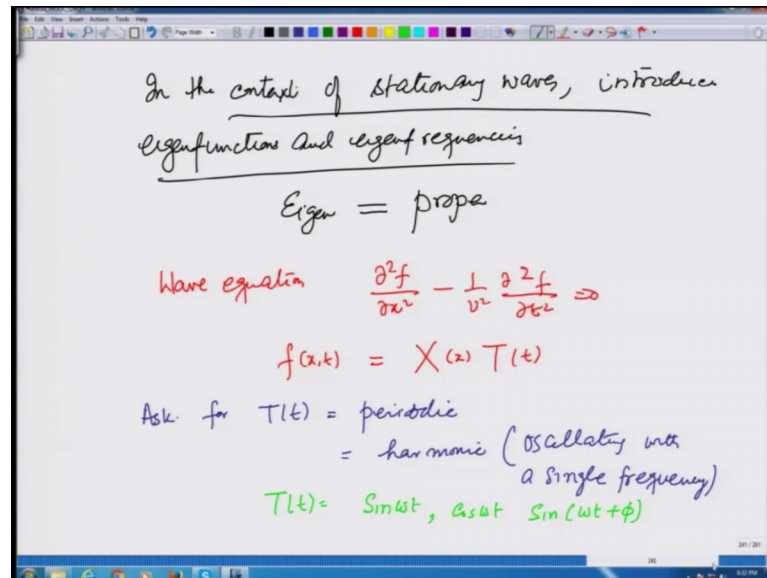 File Edit View Insert Actions Tools Help
Page Width
In the context of stationary waves, introduce
eigenfunctions and eigenfrequencies
Eigen = prope
Wave equation ∂²f/∂x² − 1/v² ∂²f/∂t² =0
f(x,t) = X(x) T(t)
Ask for T(t) = periodic
= harmonic (oscillating with
a single frequency)
T(t)= Sinωt, cosωt Sin(ωt+φ)
241 / 281
241
6:32 PM